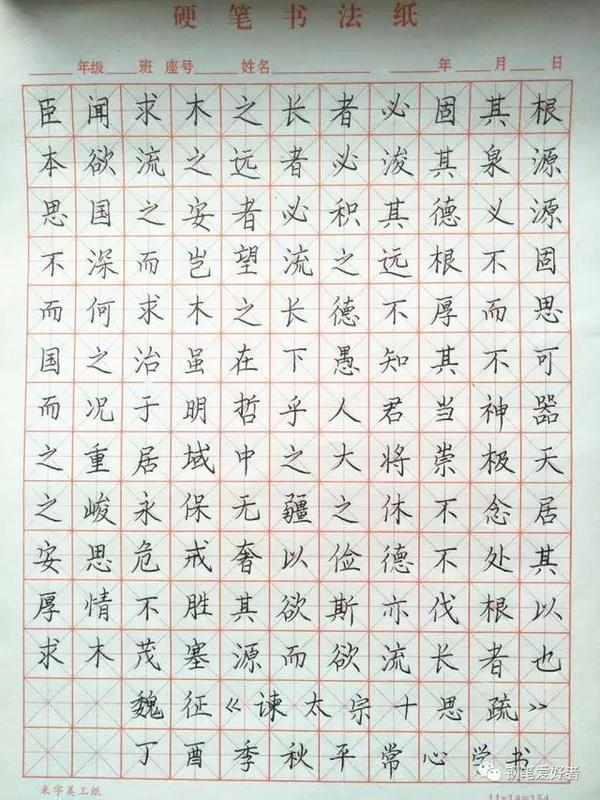 硬笔书法纸
年级 班 座号 姓名 年 月 日
臣闻求木之长者必固其根
本欲流之远者必浚其泉源
思国之安者必积其德义源
不深而岂望流之远根不固
而何求木之长德不厚而思
国之治虽在下愚知其不可
而况于明哲乎人君当神器
之重居域中之大将崇极天
之峻永保无疆之休不念居
安思危戒奢以俭德不处其
厚情不胜其欲斯亦伐根以
求木茂塞源而欲流长者也
魏征《谏太宗十思疏》
丁酉季秋平常心学书
米字美工纸
11x14=154
钢笔爱好者